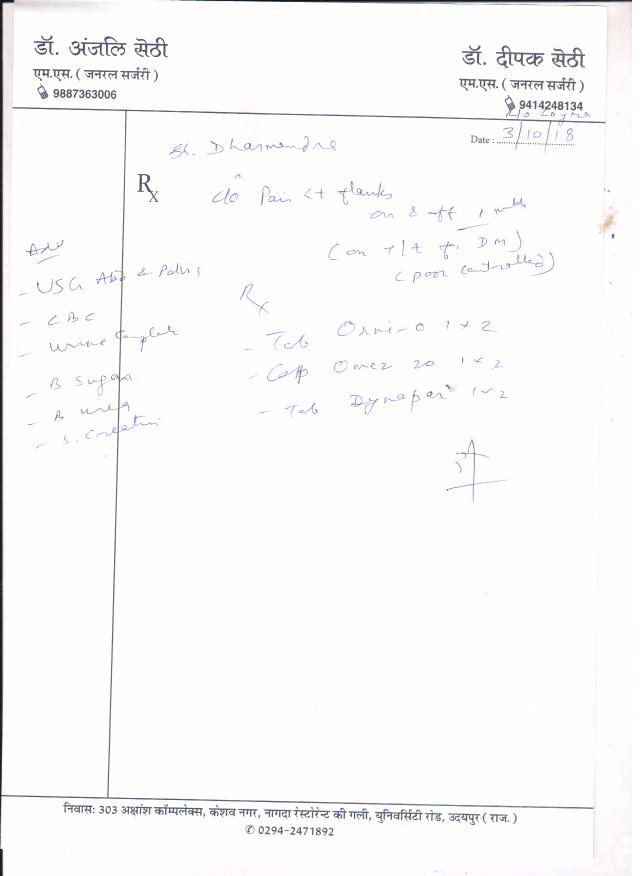 डॉ. अंजलि सेठी
एम.एस. ( जनरल सर्जरी )
9887363006
डॉ. दीपक सेठी
एम.एस. ( जनरल सर्जरी )
9414248134
Date : 3/10/18
Sh. Dharmendra
Rx
c/o Pain Lt flanks
on & off 1 month
(on T/t for DM)
(poor controlled)
Adv
- USG Abd & Pelvis
- CBC
- Urine Complete
- B Sugar
- B Urea
- S. Creatini
Rx
- Tab Orni-O 1 x 2
- Cap Omez 20 1 x 2
- Tab Dynapar 1 x 2
निवास: 303 अक्षांश कॉम्पलेक्स, केशव नगर, नागदा रेस्टोरेन्ट की गली, युनिवर्सिटी रोड, उदयपुर ( राज. )
✆ 0294-2471892